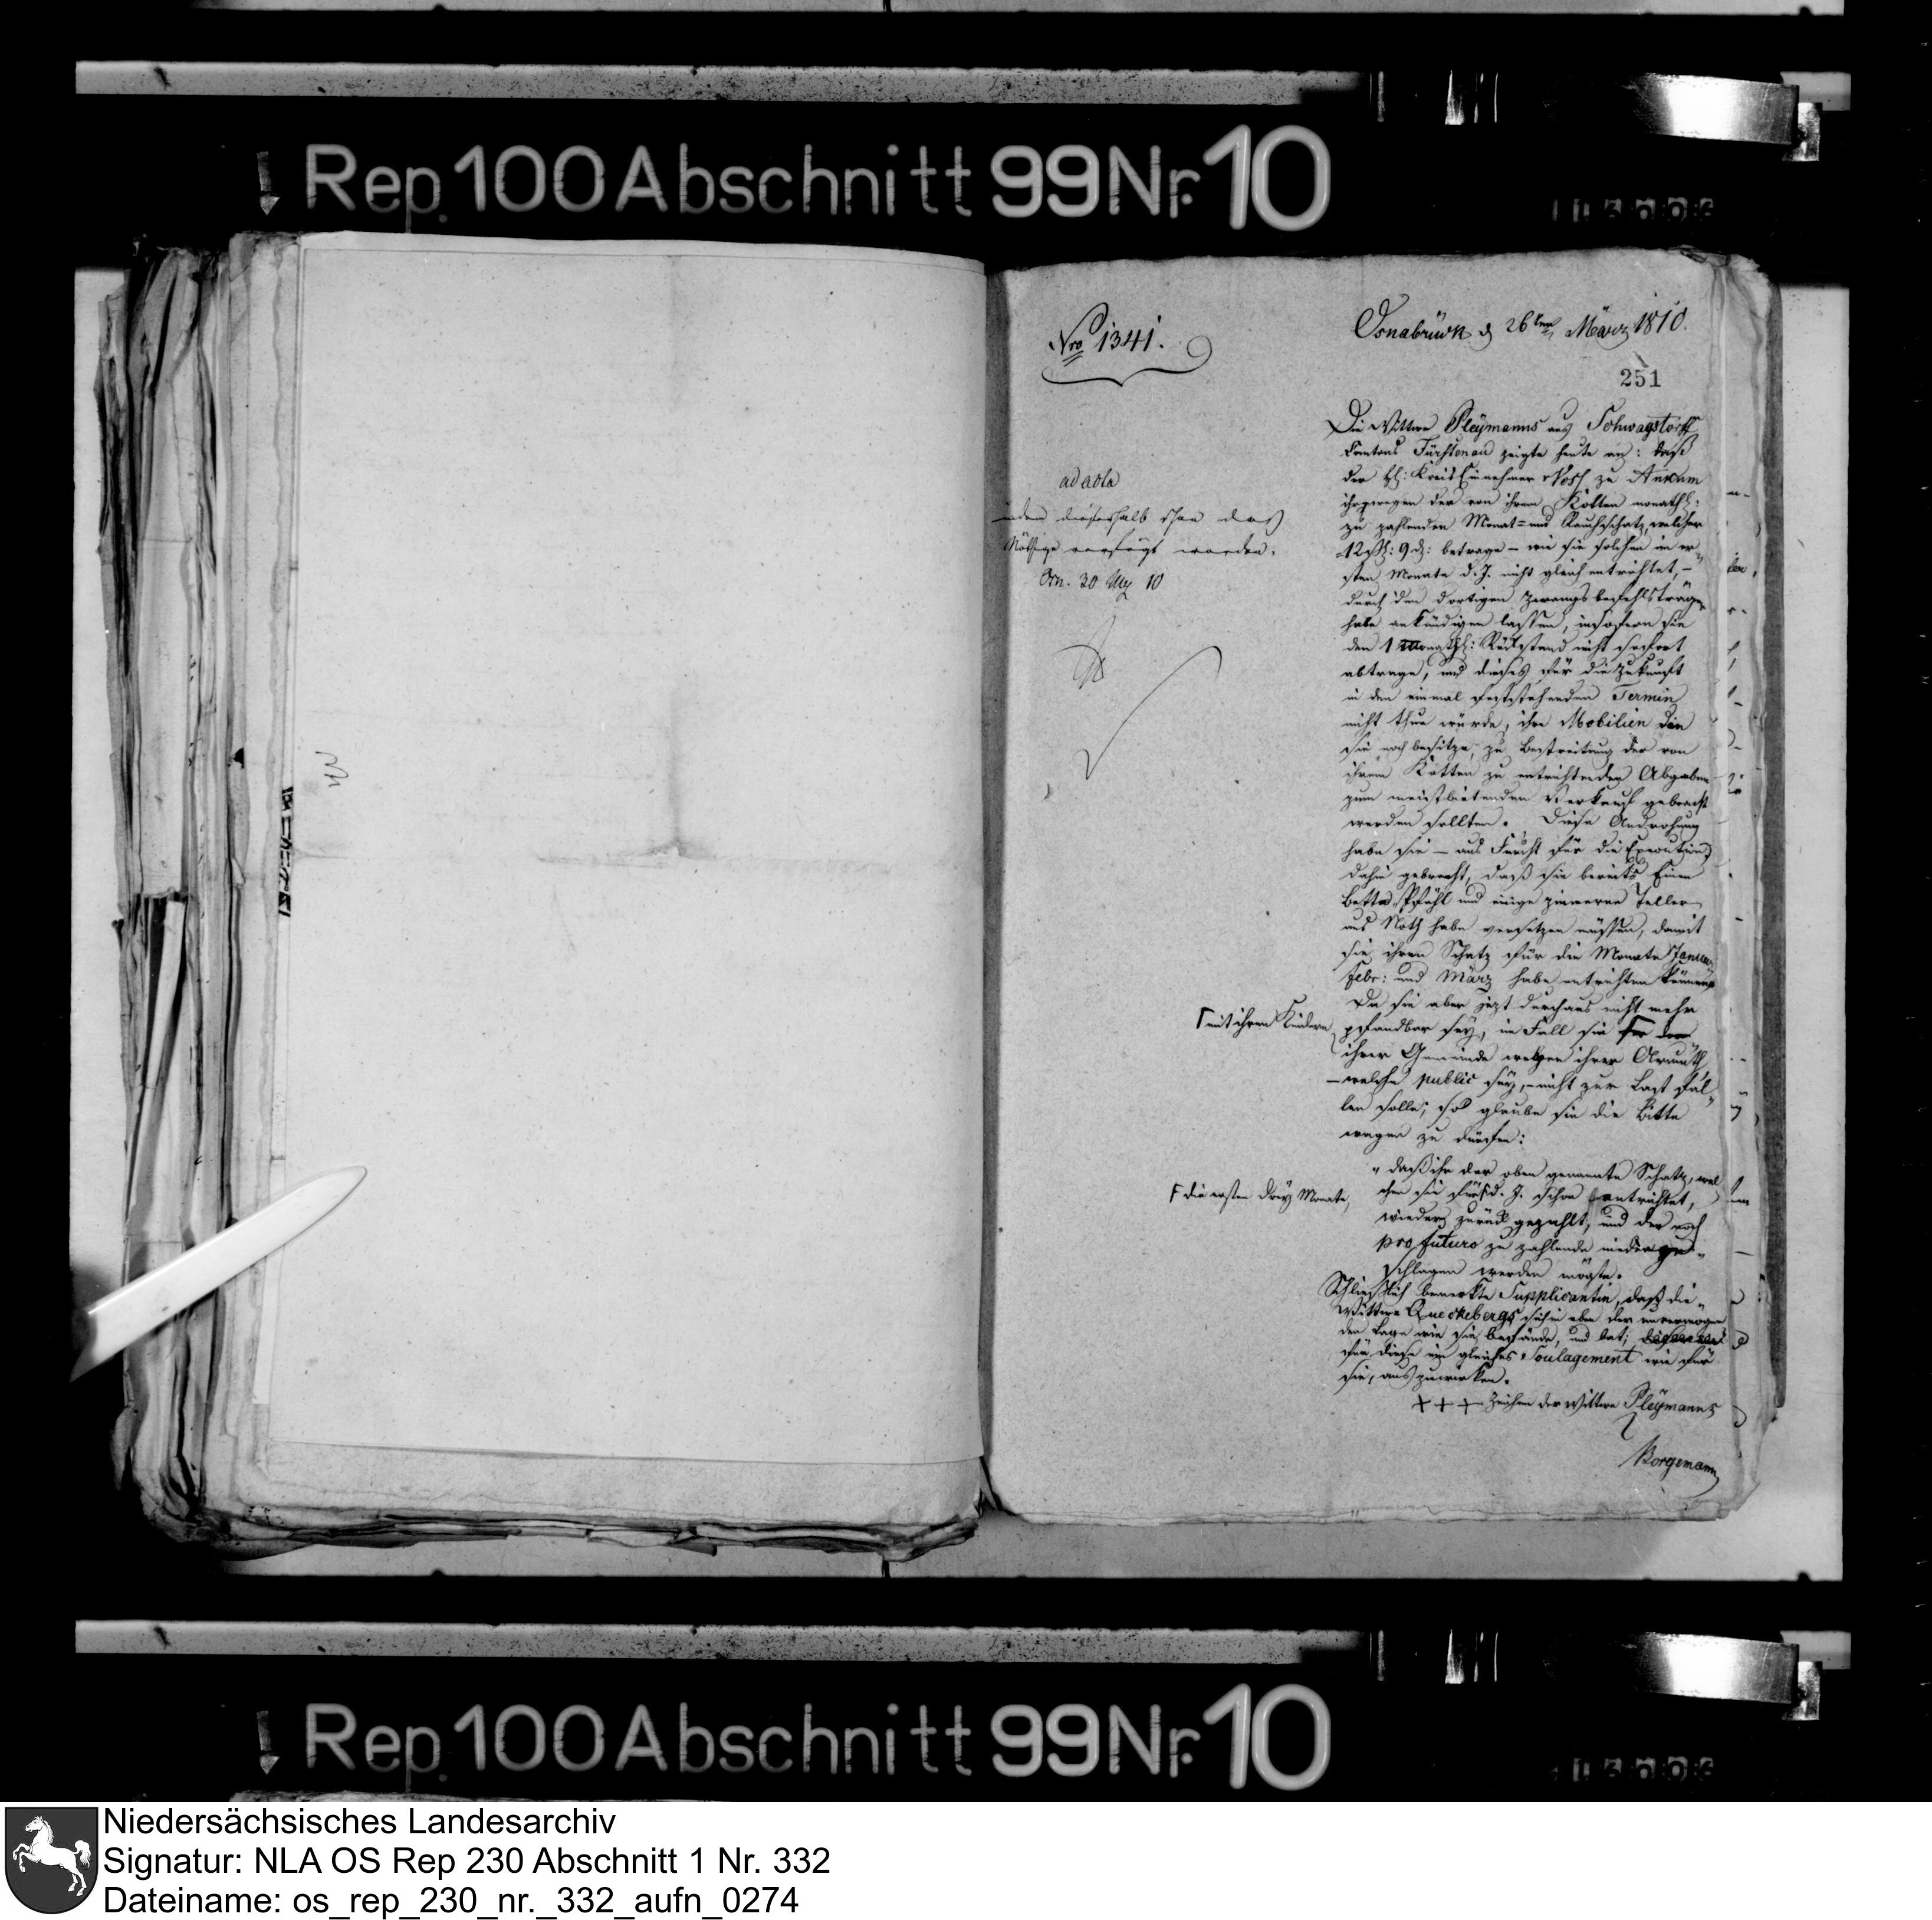 Rep. 100 Abschnitt 99 Nr. 10
Nro 1341.
Osnabrück d 26ten März 1810.
251
ad acta
indem dieserhalb schon das
Nöthige verfügt worden.
Osn. 30 Mz 10
Die Wittwe Pleÿmanns aus Schwagstorff
Cantons Fürstenau zeigte heute an: daß
der H: Kreis Einnehmer Voss zu Ankum
ihr wegen der von ihrem Kotten monathl:
zu zahlenden Monat= und Rauchschatz, welcher
12 ßl: 9 d: betrage – wie sie solchen im er„
sten Monate d. J. nicht gleich entrichtet, –
durch den dortigen Zwangsbefehlsträger
habe ankündigen lassen, insofern sie
den 1 Monathl: Rückstand nicht sofort
abtrage, und dieses für die Zukunft
in den einmal feststehenden Termin
nicht thun würde, ihre Mobilien die
sie noch besitze, zu Bestreitung der von
ihrem Kotten zu entrichtenden Abgaben
zum meistbietenden Verkauf gebracht
werden sollten. Diese Androhung
habe sie – aus Furcht für die Execution
dahin gebracht, daß sie bereits Einen
Bette Pfühl und einige zinnerne Teller
aus Noth habe versetzen müssen, damit
sie ihren Schatz für die Monate Januar
Febr: und März habe entrichten können
Da sie aber jezt durchaus nicht mehr
Γ mit ihren Kindern
pfandbar seÿ, im Fall sie
ihrer Gemeinde wegen ihrer Armuth,
– welche public seÿ, – nicht zur Last fal„
len solle; so glaube sie die Bitte
wagen zu dürfen:
„ daß ihr der oben genannte Schatz, wel
chen sie für d. J. schon Γ entrichtet,
Γ die ersten dreÿ Monate,
wieder zurück gezahlt, und der noch
pro futuro zu zahlende niederge„
schlagen werden mögte.
Schließlich bemerkte Supplicantin, daß die
Wittwe Queckebergs sich in eben der unvermögen
den Lage wie sie befände, und bat;
für diese ein gleiches Soulagement wie für
sie, auszuwirken.
+++ Zeichen der Wittwe Pleÿmanns
Borgemann
Rep. 100 Abschnitt 99 Nr. 10
Niedersächsisches Landesarchiv
Signatur: NLA OS Rep 230 Abschnitt 1 Nr. 332
Dateiname: os_rep_230_nr._332_aufn_0274